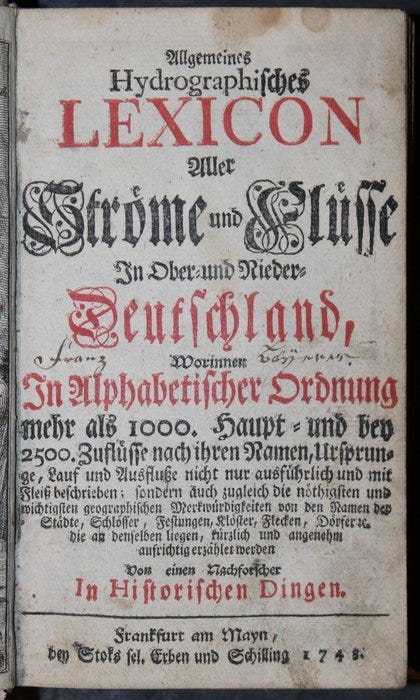 Allgemeines
Hydrographisches
LEXICON
Aller
Ströme und Flüsse
In Ober- und Nieder-
Deutschland,
Franz Worinnen
In Alphabetischer Ordnung
mehr als 1000. Haupt- und bey
2500. Zuflüsse nach ihren Namen, Ursprun-
ge, Lauf und Ausfluße nicht nur ausführlich und mit
Fleiß beschrieben; sondern auch zugleich die nöthigsten und
wichtigsten geographischen Merkwürdigkeiten von den Namen der
Städte, Schlösser, Festungen, Klöster, Flecken, Dörfer ꝛc.
die an denselben liegen, kürzlich und angenehm
aufrichtig erzählet werden
Von einen Nachforscher
In Historischen Dingen.
Frankfurt am Mayn,
bey Stoks sel. Erben und Schilling 1743.